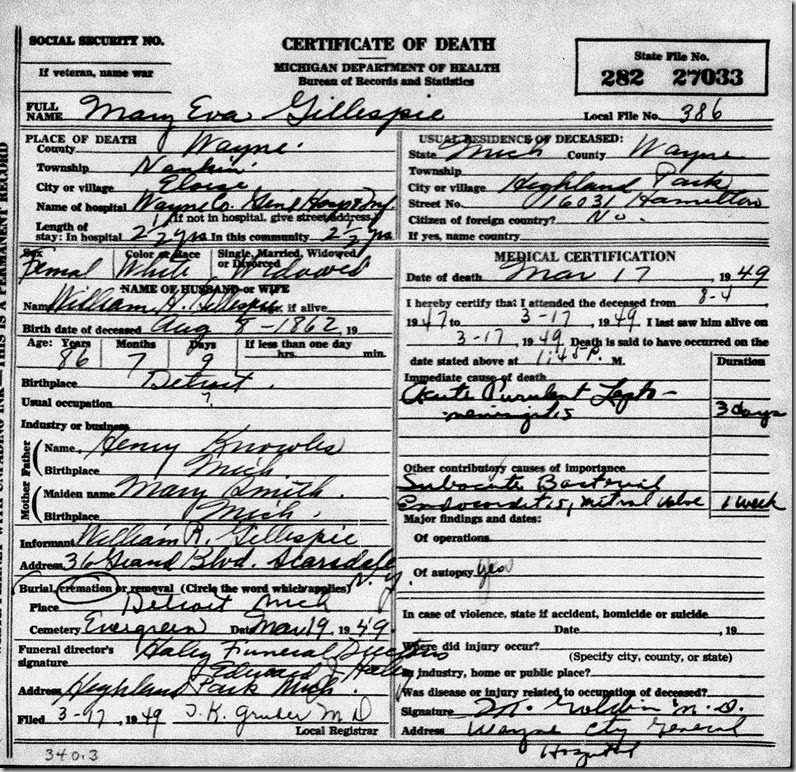 SOCIAL SECURITY NO.
If veteran, name war
CERTIFICATE OF DEATH
MICHIGAN DEPARTMENT OF HEALTH
Bureau of Records and Statistics
State File No.
282 27033
FULL NAME Mary Eva Gillespie
Local File No. 386
PLACE OF DEATH
County Wayne.
Township Nankin.
City or village Eloise
Name of hospital Wayne Co. Gen'l Hosp & Inf.
(If not in hospital, give street address)
Length of stay: In hospital 2 1/2 yrs In this community 2 1/2 yrs
Sex Femal Color or Race White Single, Married, Widowed or Divorced Widowed
NAME OF HUSBAND OR WIFE
Name William H. Gillespie Age, if alive
Birth date of deceased Aug 8 - 1862, 19
Age: Years 86 Months 7 Days 9 If less than one day hrs. min.
Birthplace Detroit.
Usual occupation ?
Industry or business
Father
Name Henry Knowles
Birthplace Mich
Mother
Maiden name Mary Smith.
Birthplace Mich.
Informant William R. Gillespie
Address 36 Grand Blvd. Scarsdale N.Y.
Burial, cremation or removal (Circle the word which applies)
Place Detroit Mich
Cemetery Evergreen Date Mar 19, 1949.
Funeral director's signature Haley Funeral Directors
Edward J Haley
Address Highland Park Mich.
Filed 3-17, 1949 T.K. Gruber M D
Local Registrar
3403
USUAL RESIDENCE OF DECEASED:
State Mich County Wayne
Township
City or village Highland Park
Street No. 16031 Hamilton
Citizen of foreign country? No.
If yes, name country
MEDICAL CERTIFICATION
Date of death Mar 17 1949
I hereby certify that I attended the deceased from 8-4
1947 to 3-17, 1949 I last saw him alive on
3-17, 1949 Death is said to have occurred on the
date stated above at 1:45 P. M.
Duration
Immediate cause of death
Acute Purulent Lepto-
meningitis 3 days
Other contributory causes of importance
Subacute Bacterial
Endocarditis, mitral valve 1 week
Major findings and dates:
Of operations
Of autopsy yes
In case of violence, state if accident, homicide or suicide
Date , 19
Where did injury occur?
(Specify city, county, or state)
In industry, home or public place?
Was disease or injury related to occupation of deceased?
Signature M. Goldin M.D.
Address Wayne Cty General
Hospital